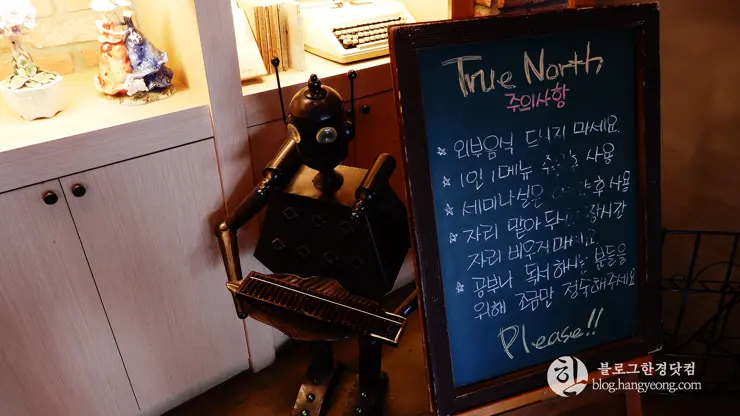 True North
주의사항
☆ 외부음식 드시지 마세요.
☆ 1인 1메뉴 후 사용
☆ 세미나실은 후 사용
☆ 자리 맡아두고 장시간
자리 비우지 마세요
☆ 공부나 독서하시는 분들을
위해 조금만 정숙해주세요
Please!!
한
블로그한경닷컴
blog.hangyeong.com